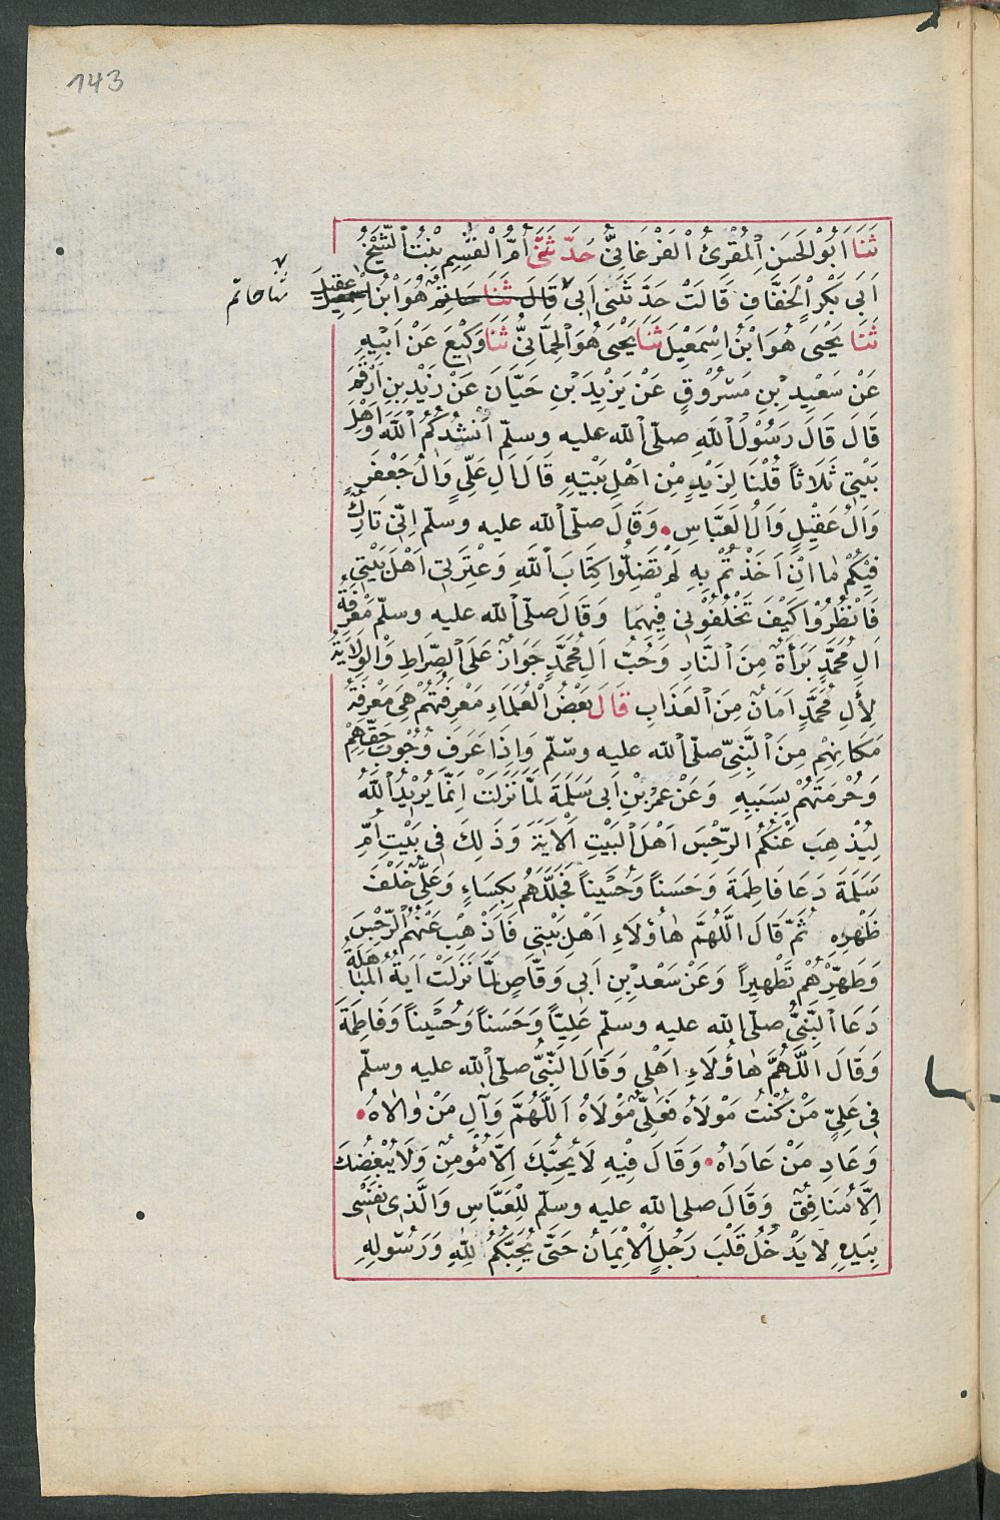 143
ثَنَا اَبُو الْحَسَنِ الْمُقْرِئُ الْفَرْغَانِيُّ حَدَّثَتْنِي اُمُّ الْقٰسِمِ بِنْتُ الشَّيْخِ
اَبِى بَكْرٍ الْخَفَّافِ قَالَتْ حَدَّثَنِى اَبِى قَالَ ثَنَا حَاتِمٌ هُوَ ابْنُ عقيل
ثنا حاتم
ثَنَا يَحْيَى هُوَ ابْنُ اِسْمٰعِيلَ ثَنَا يَحْيَى هُوَ الْحِمَّانِيُّ ثَنَا وَكِيْعٌ عَنْ اَبِيْهِ
عَنْ سَعِيدِ بْنِ مَسْرُوْقٍ عَنْ يَزِيْدَ بْنِ حَيَّانَ عَنْ زَيْدِ بْنِ اَرْقَمَ
قَالَ قَالَ رَسُوْلُ اللّٰهِ صلّى الله عليه وسلّم اَنْشُدُكُمُ اللّٰهَ وَاَهْلَ
بَيْتِى ثَلَاثًا قُلْنَا لِزَيْدٍ مِنْ اَهْلِ بَيْتِهِ قَالَ اٰلُ عَلِّيٍ وَاٰلُ جَعْفَرٍ
وَاٰلُ عَقِيْلٍ وَاٰلُ الْعَبَّاسِ • وَقَالَ صلّى الله عليه وسلّم اِنِّى تَارِكٌ
فِيْكُمْ مَا اِنْ اَخَذْتُمْ بِهِ لَمْ تَضِلُّوا كِتَابَ اللّٰهِ وَعِتْرَتِى اَهْلَ بَيْتِى
فَانْظُرُوْا كَيْفَ تَخْلُفُوْنِى فِيْهِمَا وَقَالَ صلّى الله عليه وسلّم مَعْرِفَةُ
اٰلِ مُحَمَّدٍ بَرَأَةٌ مِنَ النَّارِ وَحُبُّ اٰلِ مُحَمَّدٍ جَوَازٌ عَلَى الصِّرَاطِ وَالْوِلَايَةُ
لِأٰلِ مُحَمَّدٍ اَمَانٌ مِنَ الْعَذَابِ قَالَ بَعْضُ الْعُلَمَاءِ مَعْرِفَتُهُمْ هِىَ مَعْرِفَةُ
مَكَانِهِمْ مِنَ النَّبِيِّ صلّى الله عليه وسلّم وَاِذَا عَرَفَ وُجُوْبَ حَقِّهِمْ
وَحُرْمَتِهُمْ بِسَبَبِهِ وَعَنْ عُمَرَ بْنِ اَبِى سَلَمَةَ لَمَّا نَزَلَتْ اِنَّمَا يُرِيْدُ اللّٰهُ
لِيُذْهِبَ عَنْكُمُ الرِّجْسَ اَهْلَ الْبَيْتِ اَلْاٰيَةَ وَذٰلِكَ فِى بَيْتِ اُمِّ
سَلَمَةَ دَعَا فَاطِمَةَ وَحَسَنًا وَحُسَيْنًا فَجَلَّلَهُمْ بِكِسَاءٍ وَعَلِيٌّ خَلْفَ
ظَهْرِهِ ثُمَّ قَالَ اللّٰهُمَّ هٰؤُلَاءِ اَهْلُ بَيْتِى فَاَذْهِبْ عَنْهُمُ الرِّجْسَ
وَطَهِّرْهُمْ تَطْهِيرًا وَعَنْ سَعْدِ بْنِ اَبِى وَقَّاصٍ لَمَّا نَزَلَتْ اٰيَةُ الْمُبَاهَلَةِ
دَعَا النَّبِيُّ صلّى الله عليه وسلّم عَلِيًّا وَحَسَنًا وَحُسَيْنًا وَفَاطِمَةَ
وَقَالَ اللّٰهُمَّ هٰؤُلَاءِ اَهْلِى وَقَالَ النَّبِيُّ صلّى الله عليه وسلّم
فِى عَلِيٍّ مَنْ كُنْتُ مَوْلَاهُ فَعَلِيٌّ مَوْلَاهُ اَللّٰهُمَّ وَآلِ مَنْ وٰالَاهُ •
وَعَادِ مَنْ عَادَاهُ • وَقَالَ فِيْهِ لَا يُحِبُّكَ اِلَّا مُؤْمِنٌ وَلَا يُبْغِضُكَ
اِلَّا مُنَافِقٌ وَقَالَ صلى الله عليه وسلّم لِلْعَبَّاسِ وَالَّذِى نَفْسِى
بِيَدِهِ لَا يَدْخُلُ قَلْبَ رَجُلٍ الْاِيْمَانُ حَتَّى يُحِبَّكُمْ لِلّٰهِ وَرَسُوْلِهِ